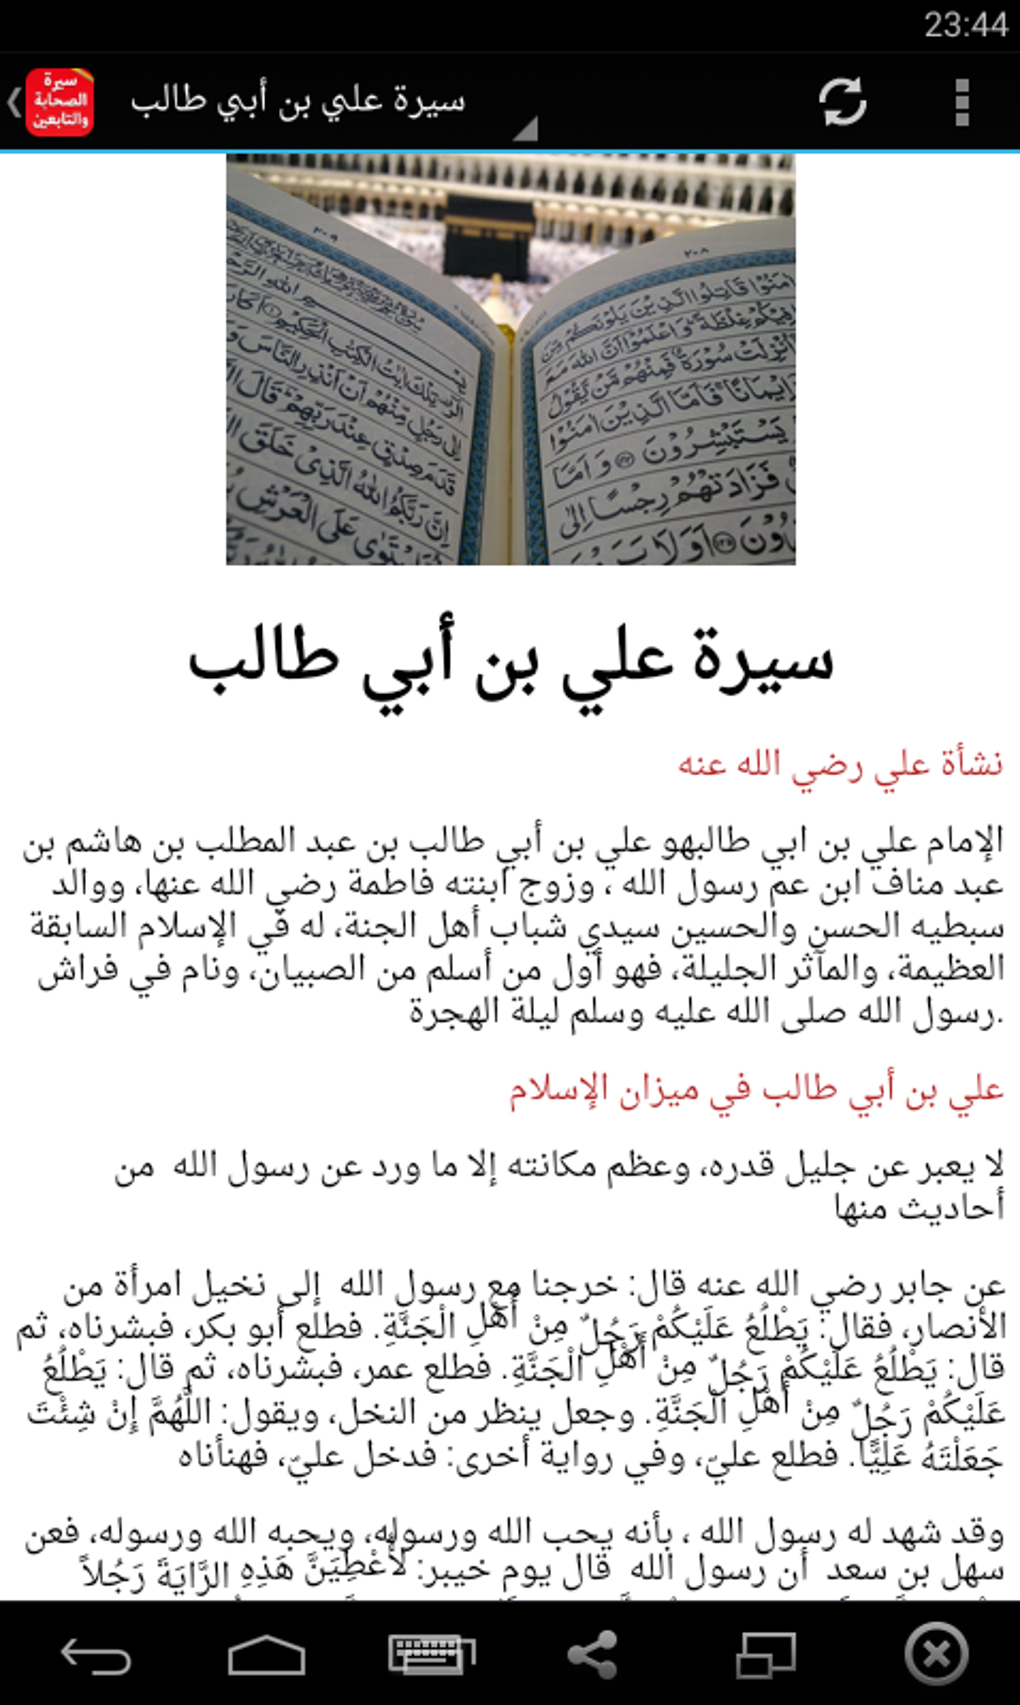 23:44
سيرة
الصحابة
والتابعين
سيرة علي بن أبي طالب
٢٠٩
٢٠٨
سيرة علي بن أبي طالب
نشأة علي رضي الله عنه
الإمام علي بن ابي طالبهو علي بن أبي طالب بن عبد المطلب بن هاشم بن
عبد مناف ابن عم رسول الله ، وزوج ابنته فاطمة رضي الله عنها، ووالد
سبطيه الحسن والحسين سيدي شباب أهل الجنة، له في الإسلام السابقة
العظيمة، والمآثر الجليلة، فهو أول من أسلم من الصبيان، ونام في فراش
.رسول الله صلى الله عليه وسلم ليلة الهجرة
علي بن أبي طالب في ميزان الإسلام
لا يعبر عن جليل قدره، وعظم مكانته إلا ما ورد عن رسول الله  من
أحاديث منها
عن جابر رضي الله عنه قال: خرجنا مع رسول الله  إلى نخيل امرأة من
الأنصار، فقال: يَطْلُعُ عَلَيْكُمْ رَجُلٌ مِنْ أَهْلِ الْجَنَّةِ. فطلع أبو بكر، فبشرناه، ثم
قال: يَطْلُعُ عَلَيْكُمْ رَجُلٌ مِنْ أَهْلِ الْجَنَّةِ. فطلع عمر، فبشرناه، ثم قال: يَطْلُعُ
عَلَيْكُمْ رَجُلٌ مِنْ أَهْلِ الْجَنَّةِ. وجعل ينظر من النخل، ويقول: اللَّهُمَّ إِنْ شِئْتَ
جَعَلْتَهُ عَلِيًّا. فطلع عليّ، وفي رواية أخرى: فدخل عليّ، فهنأناه
وقد شهد له رسول الله ، بأنه يحب الله ورسوله، ويحبه الله ورسوله، فعن
سهل بن سعد  أن رسول الله  قال يوم خيبر: لَأُعْطِيَنَّ هَذِهِ الرَّايَةَ رَجُلاً